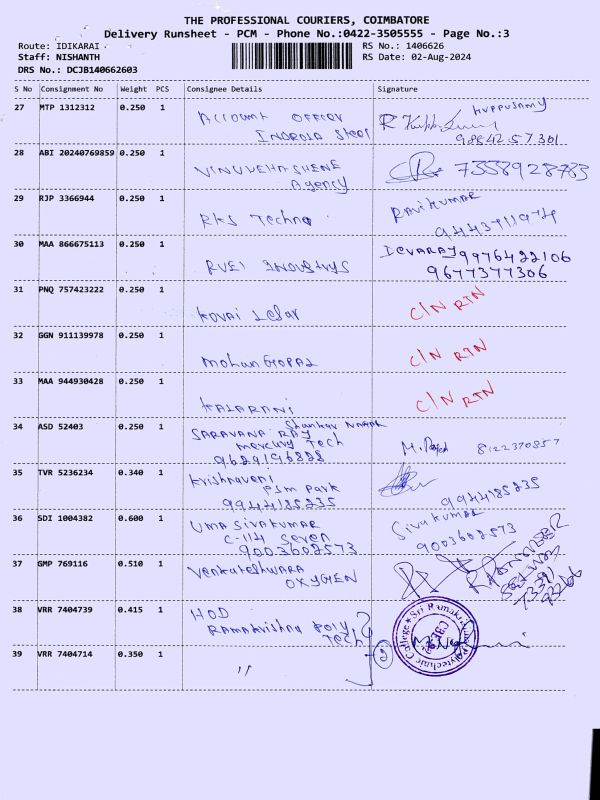 THE PROFESSIONAL COURIERS, COIMBATORE
Delivery Runsheet - PCM - Phone No.:0422-3505555 - Page No.:3
Route: IDIKARAI
RS No.: 1406626
Staff: NISHANTH
RS Date: 02-Aug-2024
DRS No.: DCJB140662603
S No Consignment No Weight PCS Consignee Details Signature
27 MTP 1312312 0.250 1 Account officer
Kuppusamy
9884257301
28 ABI 20240769859 0.250 1
Agency 7358928785
29 RJP 3366944 0.250 1 RKS Techno
Ravikumar
30 MAA 866675113 0.250 1
9976422106
9677377306
31 PNQ 757423222 0.250 1 Kovai
C/N RTN
32 GGN 911139978 0.250 1 Mohan Gopal
C/N RTN
33 MAA 944930428 0.250 1 Kalarani
C/N RTN
34 ASD 52403 0.250 1 Shankar Nagar
SARAVANA RAJ
Mercury Tech
9629196828
8122370857
35 TVR 5236234 0.340 1 Krishnaveni
PSM Park
9944185235
9944185235
36 SDI 1004382 0.600 1 UMA Sivakumar
C-114 Seven
9003602573
Sivakumar
9003602573
37 GMP 769116 0.510 1 Venkateshwara
OXYGEN
38 VRR 7404739 0.415 1 HOD
Ramakrishna Poly
Tech
39 VRR 7404714 0.350 1 "